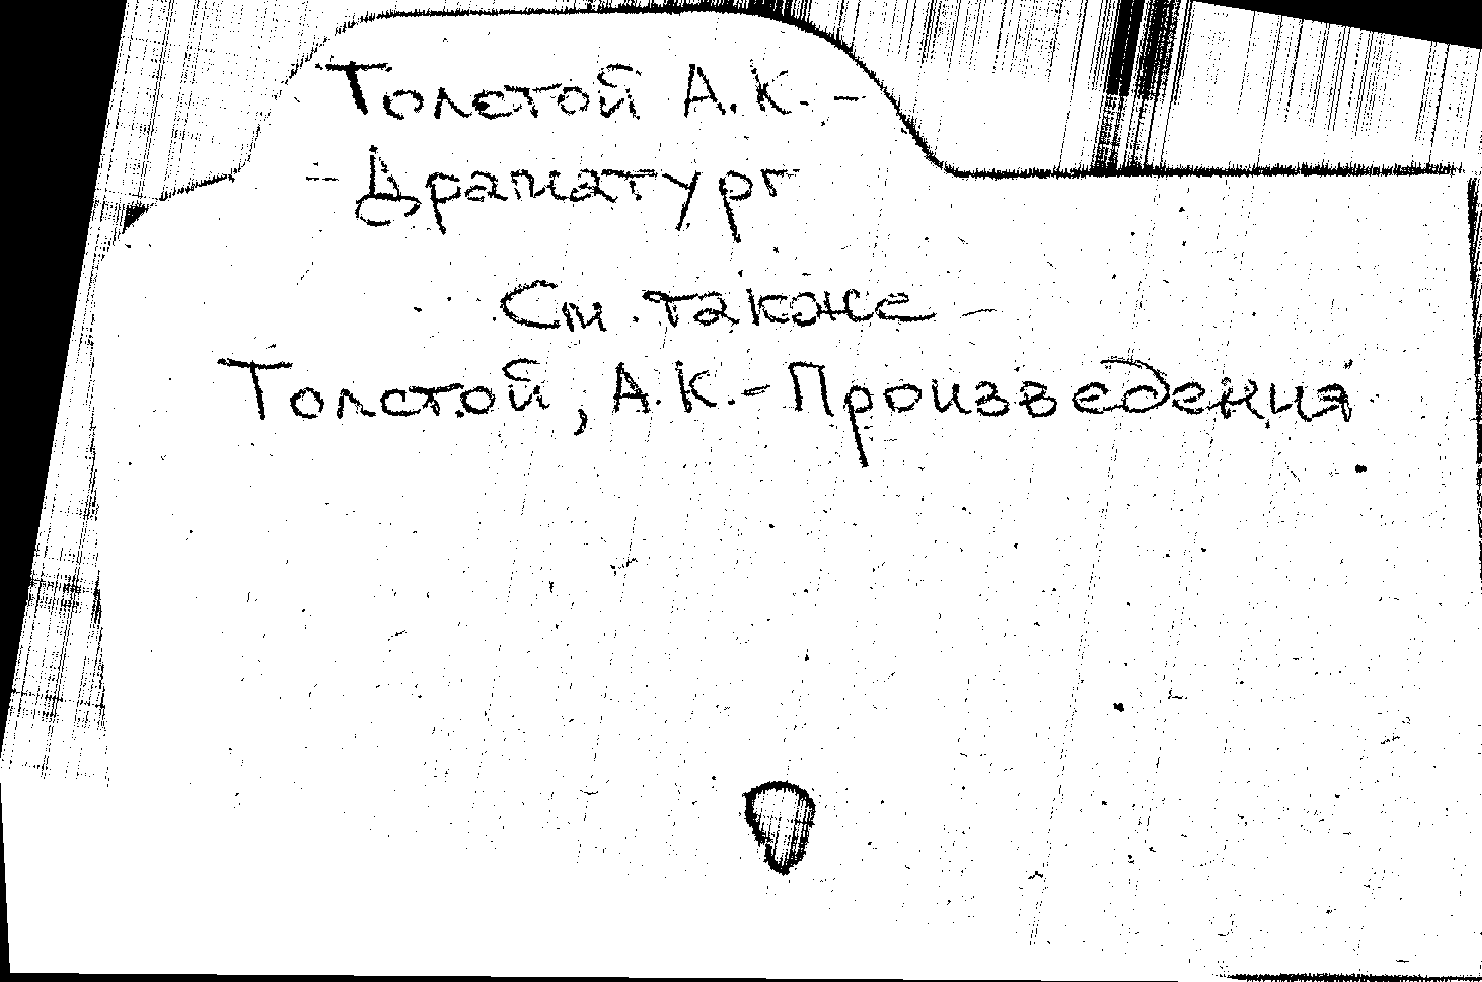 Толстой А.К. –
– Драматург
См. также –
Толстой, А.К. – Произведения